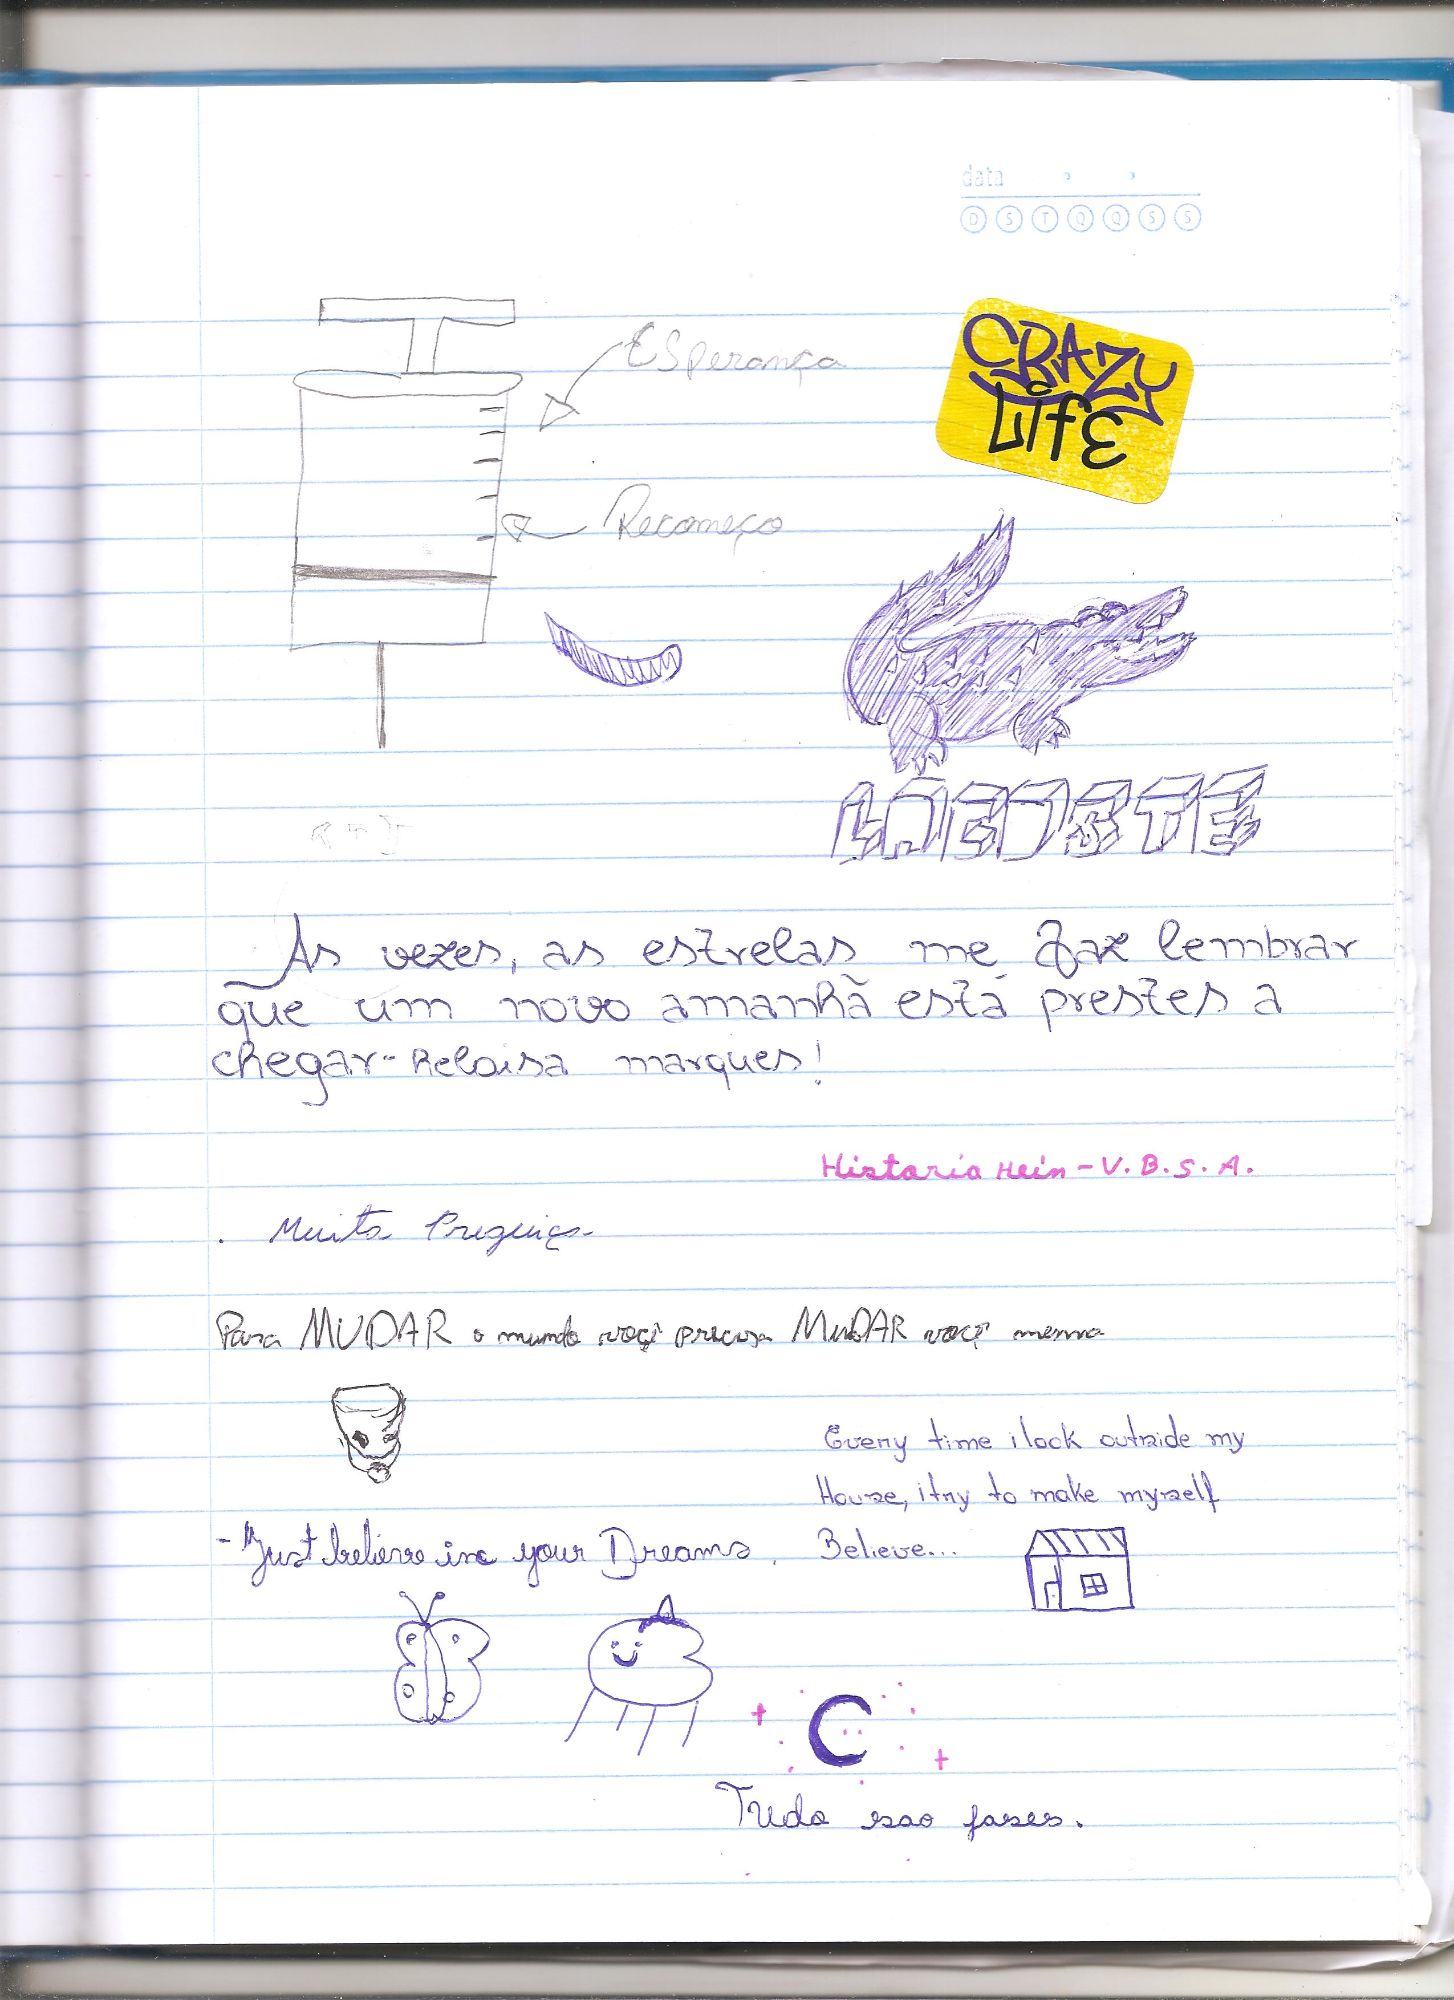 data
D S T Q Q S S
Esperança
CRAZY
LifE
Recomeço
As vezes, as estrelas me faz lembrar
que um novo amanhã está prestes a
chegar-Heloisa marques!
Historia Hein - V. B. S. A.
. Muita Preguiça
Para MUDAR o mundo você precisa MuDAR você mesma
Every time i look outside my
House, i try to make myself
- Just believe in your Dreams. Believe...
Tudo são fases.